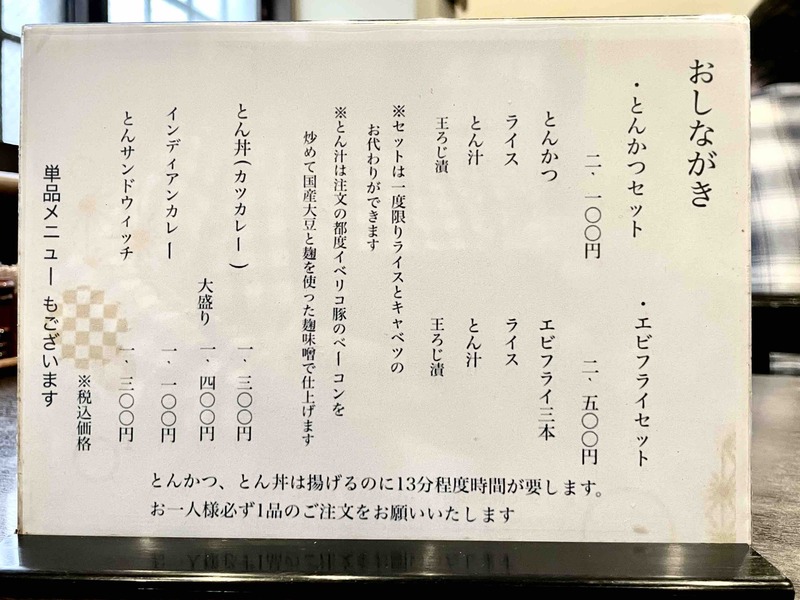 おしながき
・とんかつセット
二、一〇〇円
とんかつ
ライス
とん汁
王ろじ漬
・エビフライセット
二、五〇〇円
エビフライ三本
ライス
とん汁
王ろじ漬
※セットは一度限りライスとキャベツの
お代わりができます
※とん汁は注文の都度イベリコ豚のベーコンを
炒めて国産大豆と麹を使った麹味噌で仕上げます
とん丼(カツカレー) 一、三〇〇円
大盛り 一、四〇〇円
インディアンカレー 一、一〇〇円
とんサンドウィッチ 一、三〇〇円
※税込価格
単品メニューもございます
とんかつ、とん丼は揚げるのに13分程度時間が要します。
お一人様必ず1品のご注文をお願いいたします